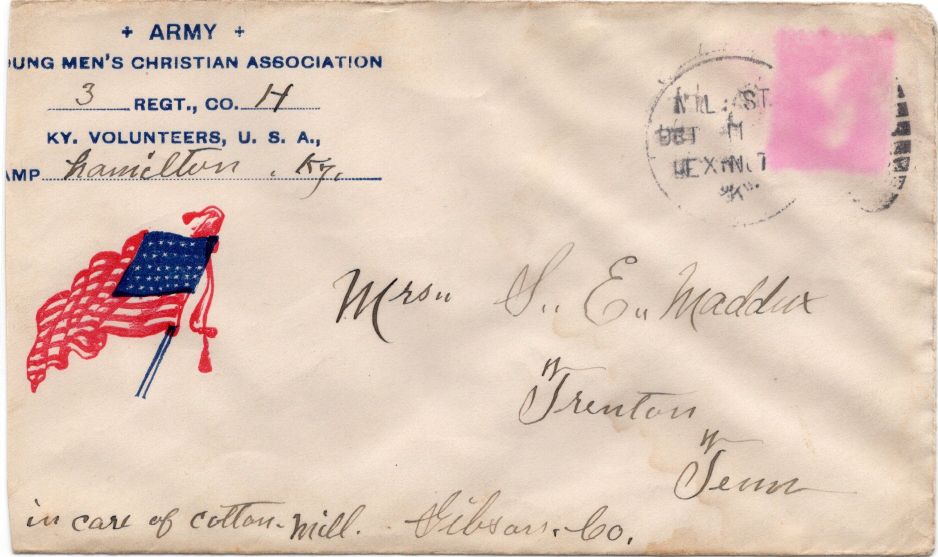 + ARMY +
OUNG MEN'S CHRISTIAN ASSOCIATION
3 REGT., CO. H
KY. VOLUNTEERS, U. S. A.,
AMP hamilton. Ky.
MIL. ST
LEXIN
KY.
Mrs. S. E. Maddux
Trenton
Tenn
in care of cotton-mill. Gibson. Co.